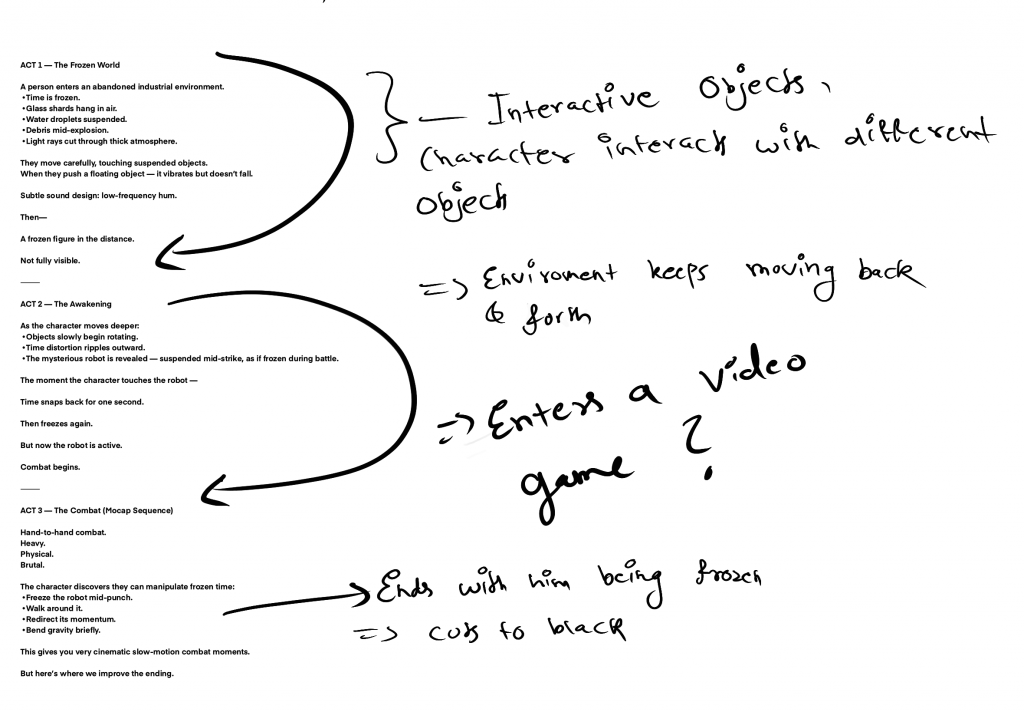 ACT 1 — The Frozen World
A person enters an abandoned industrial environment.
•Time is frozen.
•Glass shards hang in air.
•Water droplets suspended.
•Debris mid-explosion.
•Light rays cut through thick atmosphere.
They move carefully, touching suspended objects.
When they push a floating object — it vibrates but doesn't fall.
Subtle sound design: low-frequency hum.
Then—
A frozen figure in the distance.
Not fully visible.
ACT 2 — The Awakening
As the character moves deeper:
•Objects slowly begin rotating.
•Time distortion ripples outward.
•The mysterious robot is revealed — suspended mid-strike, as if frozen during battle.
The moment the character touches the robot —
Time snaps back for one second.
Then freezes again.
But now the robot is active.
Combat begins.
ACT 3 — The Combat (Mocap Sequence)
Hand-to-hand combat.
Heavy.
Physical.
Brutal.
The character discovers they can manipulate frozen time:
•Freeze the robot mid-punch.
•Walk around it.
•Redirect its momentum.
•Bend gravity briefly.
This gives you very cinematic slow-motion combat moments.
But here's where we improve the ending.
— Interactive Objects,
Character interacts with different
objects
=> Enviroment keeps moving back
& forth
=> Enters a video
game ?
Ends with him being frozen
=> cuts to black